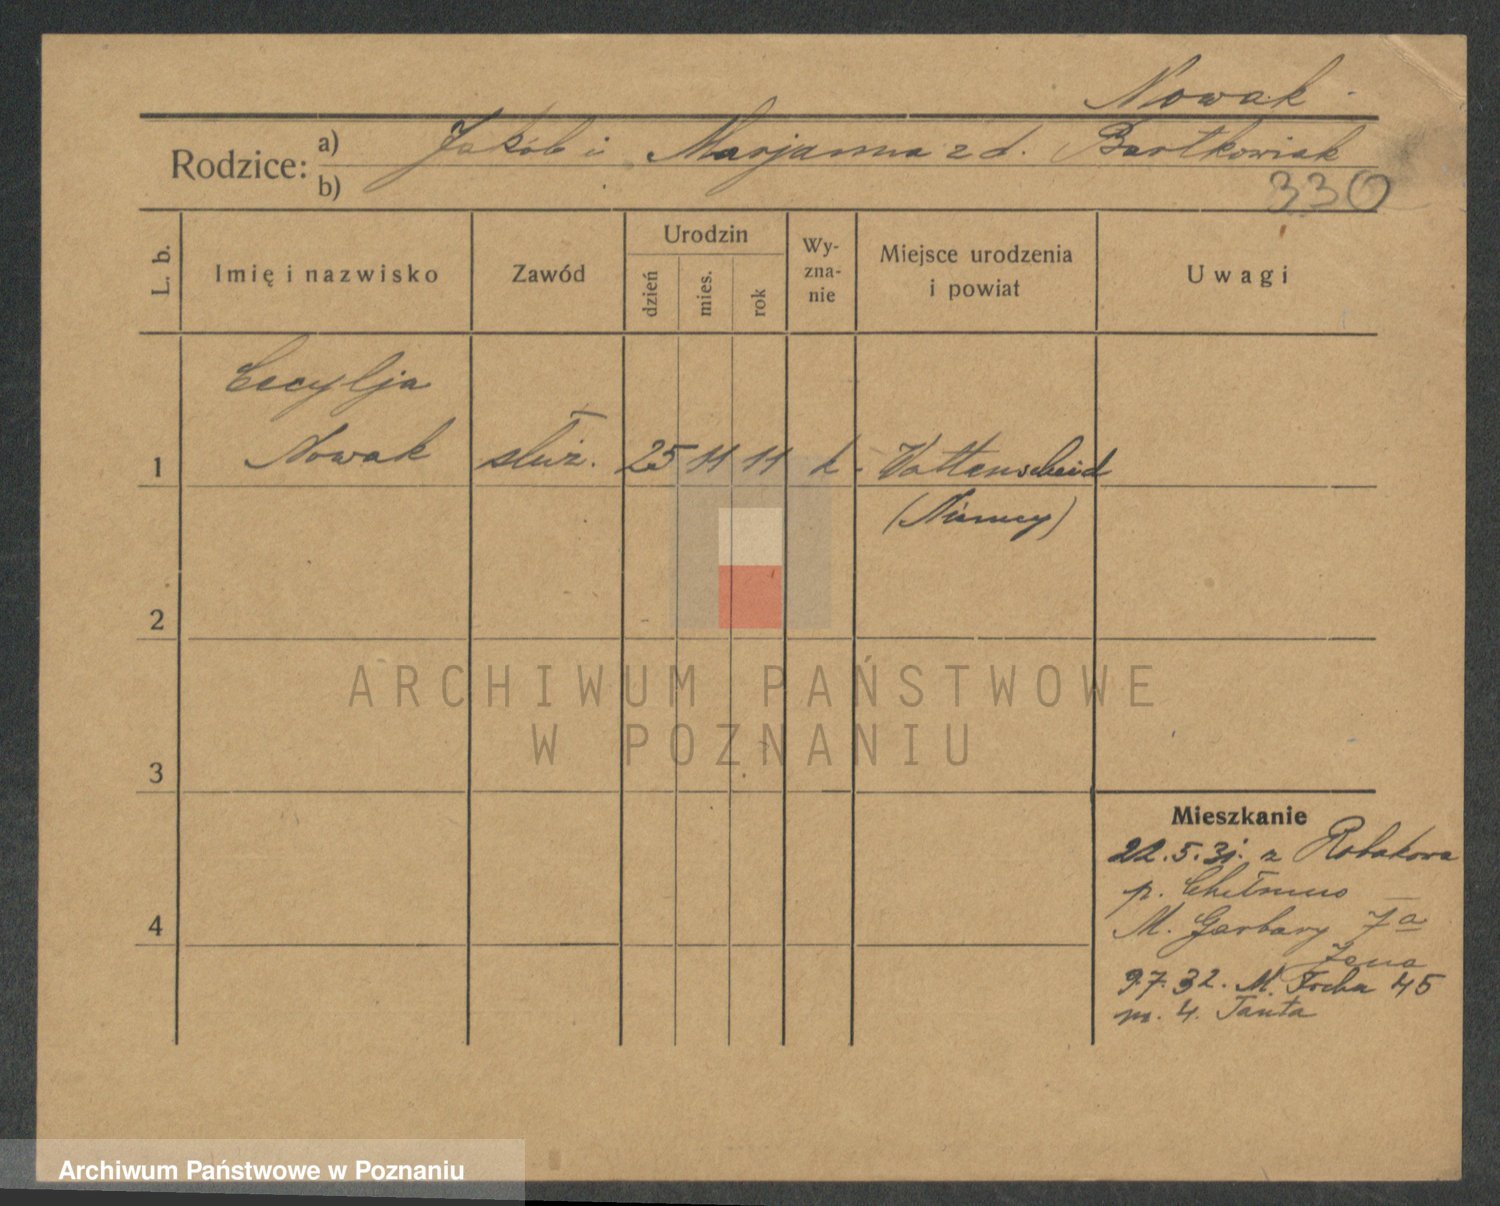 Nowak
Rodzice: a) Jakób i Marjanna z d. Bartkowiak
b)
330
L. b.
Imię i nazwisko
Zawód
Urodzin
dzień
mies.
rok
Wy-
zna-
nie
Miejsce urodzenia
i powiat
Uwagi
Cecylja
1 Nowak służ. 25 11 11 k. Wattenscheid
(Niemcy)
2
ARCHIWUM PAŃSTWOWE
W POZNANIU
3
Mieszkanie
22.5.31. z Robakowa
p. Chełmno
4
M. Garbary 7a
9.7.32. M. Focha 45
m. 4.
Archiwum Państwowe w Poznaniu